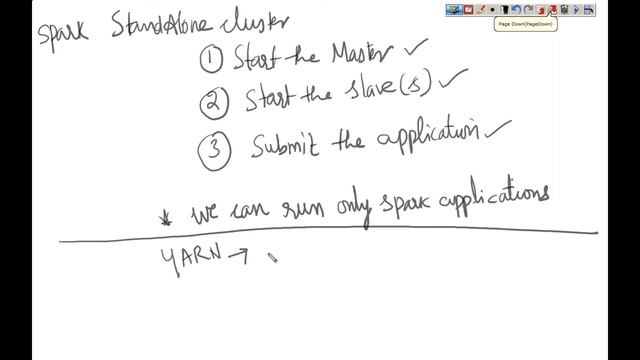 Page Down(PageDown)
Spark StandAlone cluster
① Start the Master ✓
② Start the slave(s) ✓
③ Submit the application ✓
* we can run only spark applications
YARN →